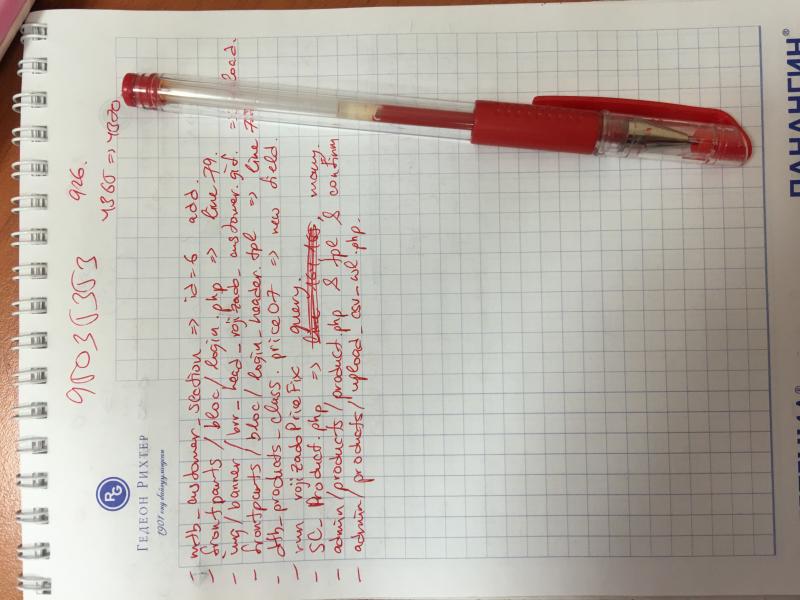 ГЕДЕОН РИХТЕР
95035353 926.
4365 => 4370
- mtb_customer_section => id=6 add.
- frontparts/bloc/login.php => line 79.
- img/banner/bnr_head_rojizado_customer.gif => load.
- frontparts/bloc/login_header.tpl => line 7
- dtb_products_class.price07 => new field.
- run rojizadoPriceFix query.
- SC_Product.php => many.
- admin/products/product.php & tpl & confirm
- admin/products/upload_csv_wl.php.
ПАНАНГИН®